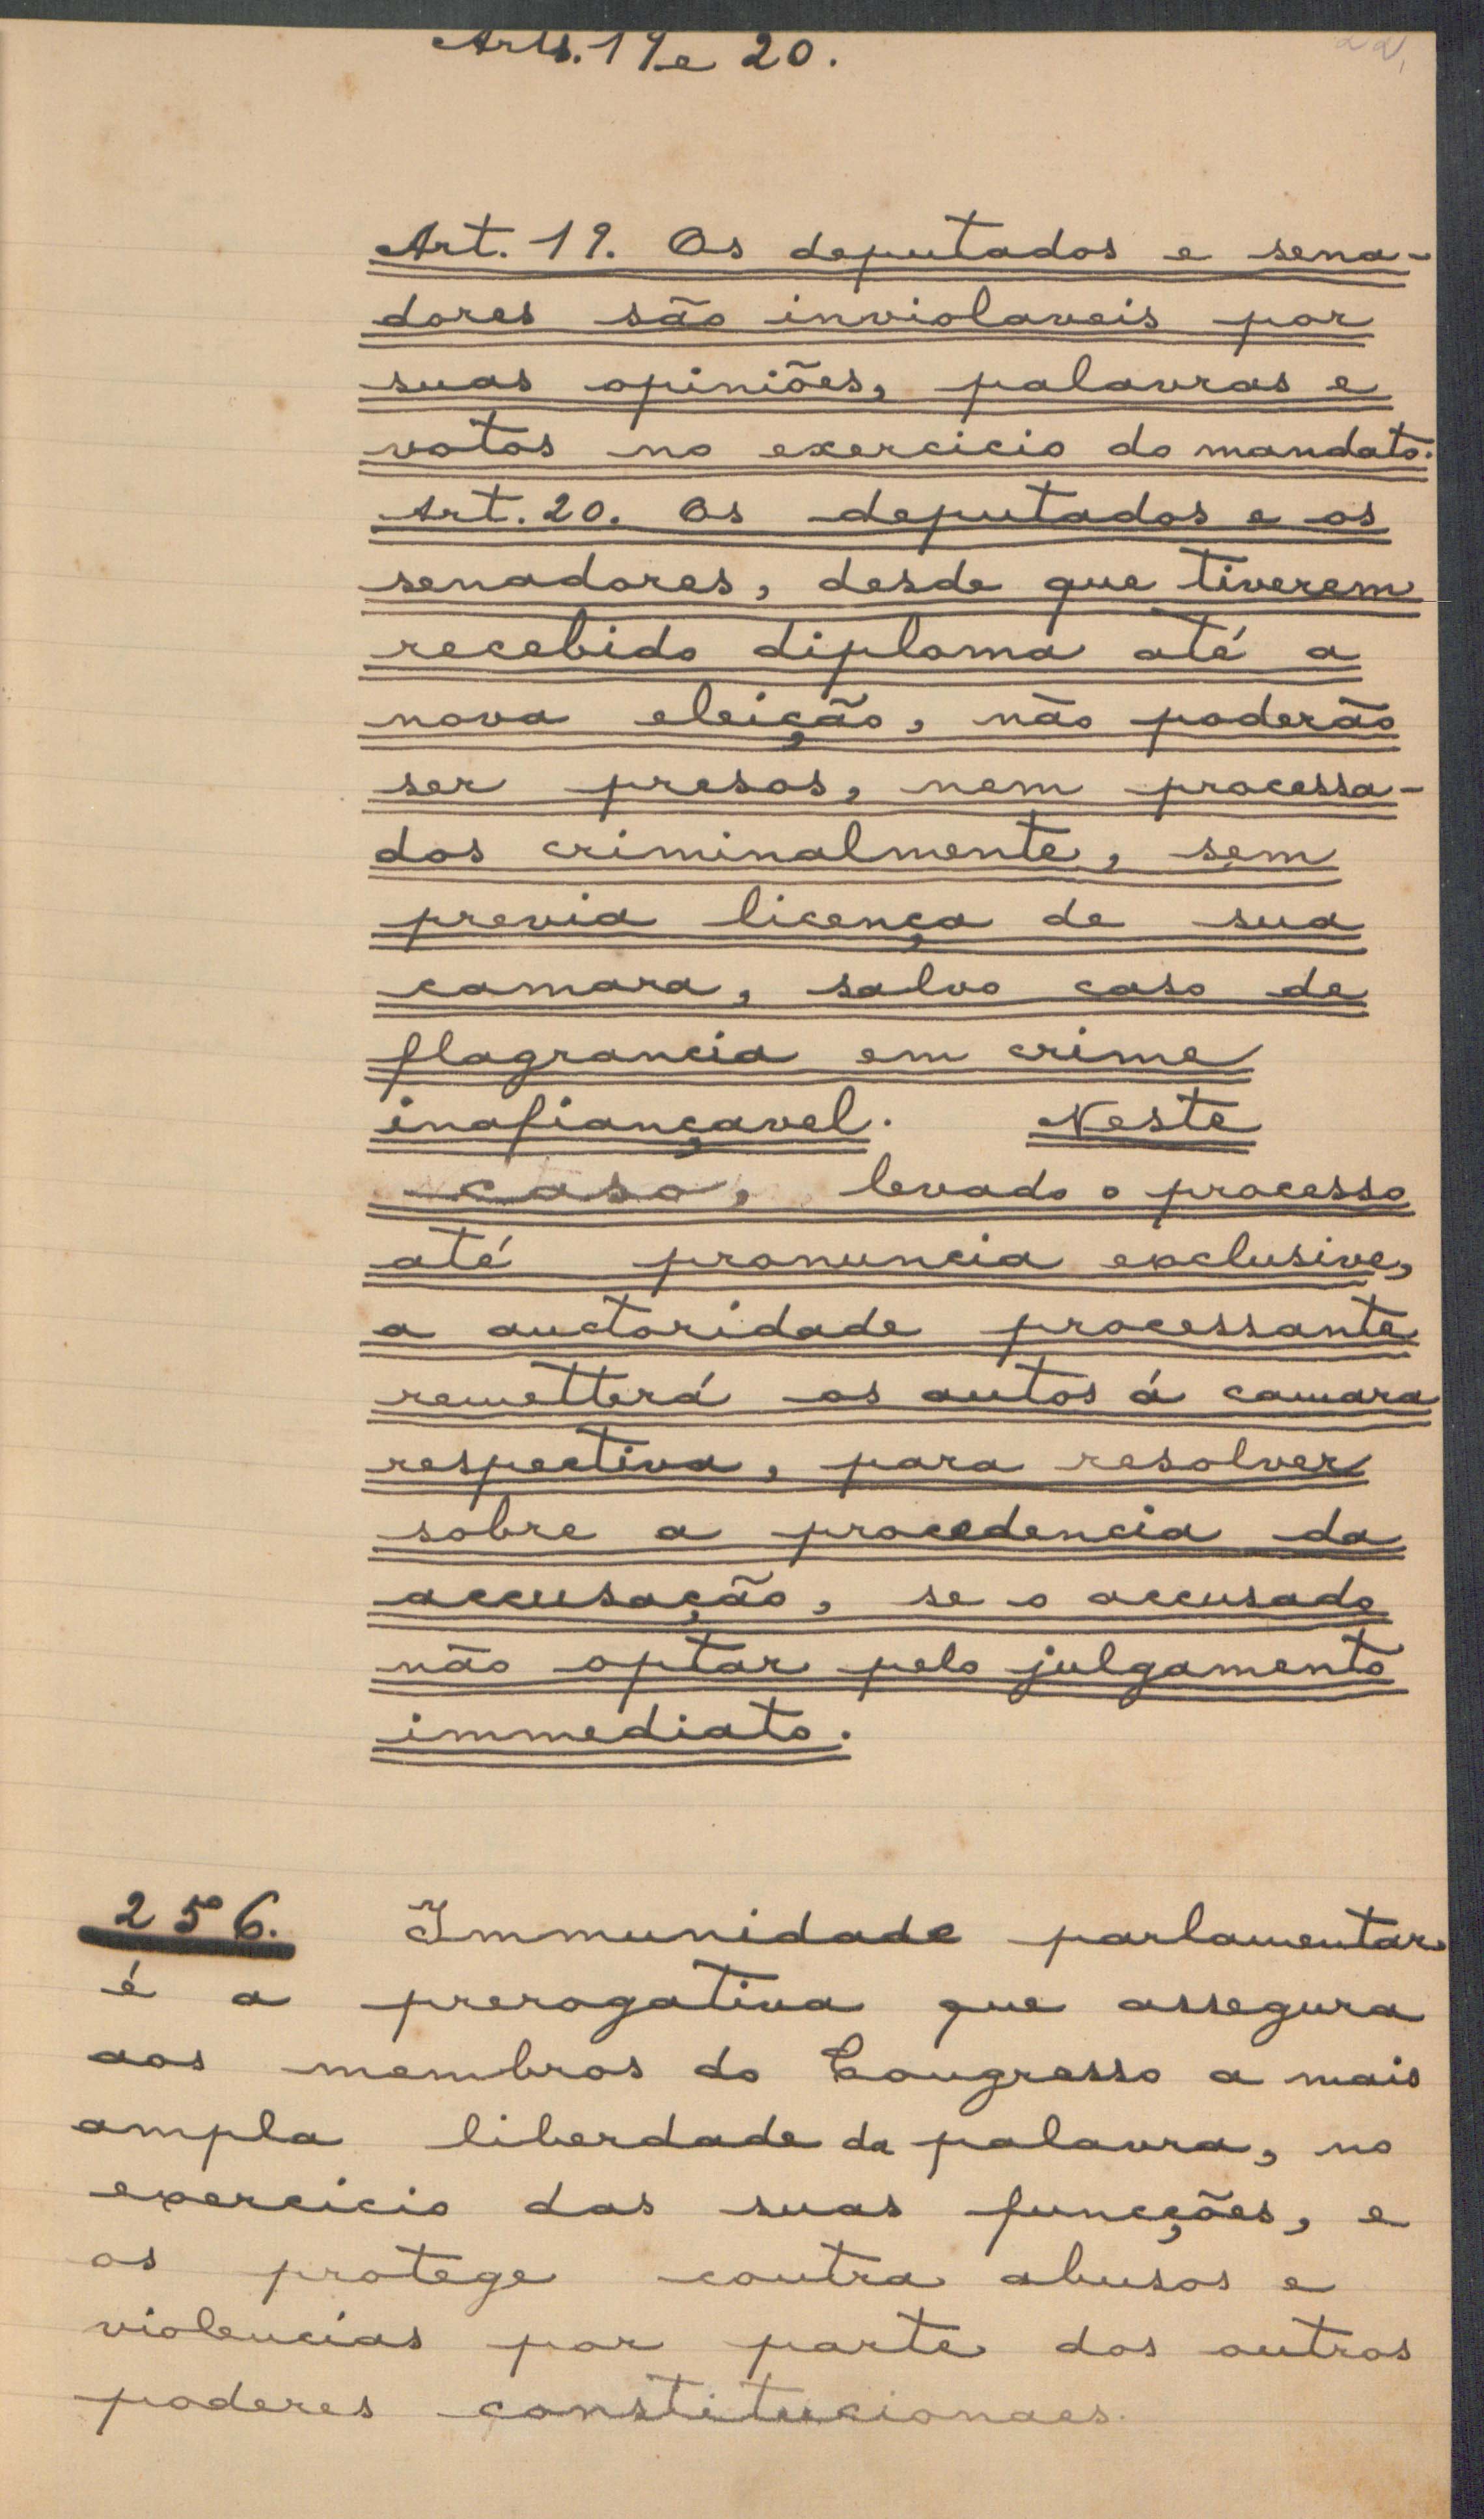 Arts. 19 e 20.
Art. 19. Os deputados e sena-
dores são inviolaveis por
suas opiniões, palavras e
votos no exercicio do mandato.
Art. 20. Os deputados e os
senadores, desde que tiverem
recebido diploma até a
nova eleição, não poderão
ser presos, nem processa-
dos criminalmente, sem
previa licença de sua
camara, salvo caso de
flagrancia em crime
inafiançavel. Neste
caso, levado o processo
até pronuncia exclusive,
a auctoridade processante
remetterá os autos á camara
respectiva, para resolver
sobre a procedencia da
accusação, se o accusado
não optar pelo julgamento
immediato.
256. Immunidade parlamentar
é a prerogativa que assegura
aos membros do Congresso a mais
ampla liberdade da palavra, no
exercicio das suas funcções, e
os protege contra abusos e
violencias por parte dos outros
poderes constitucionaes.